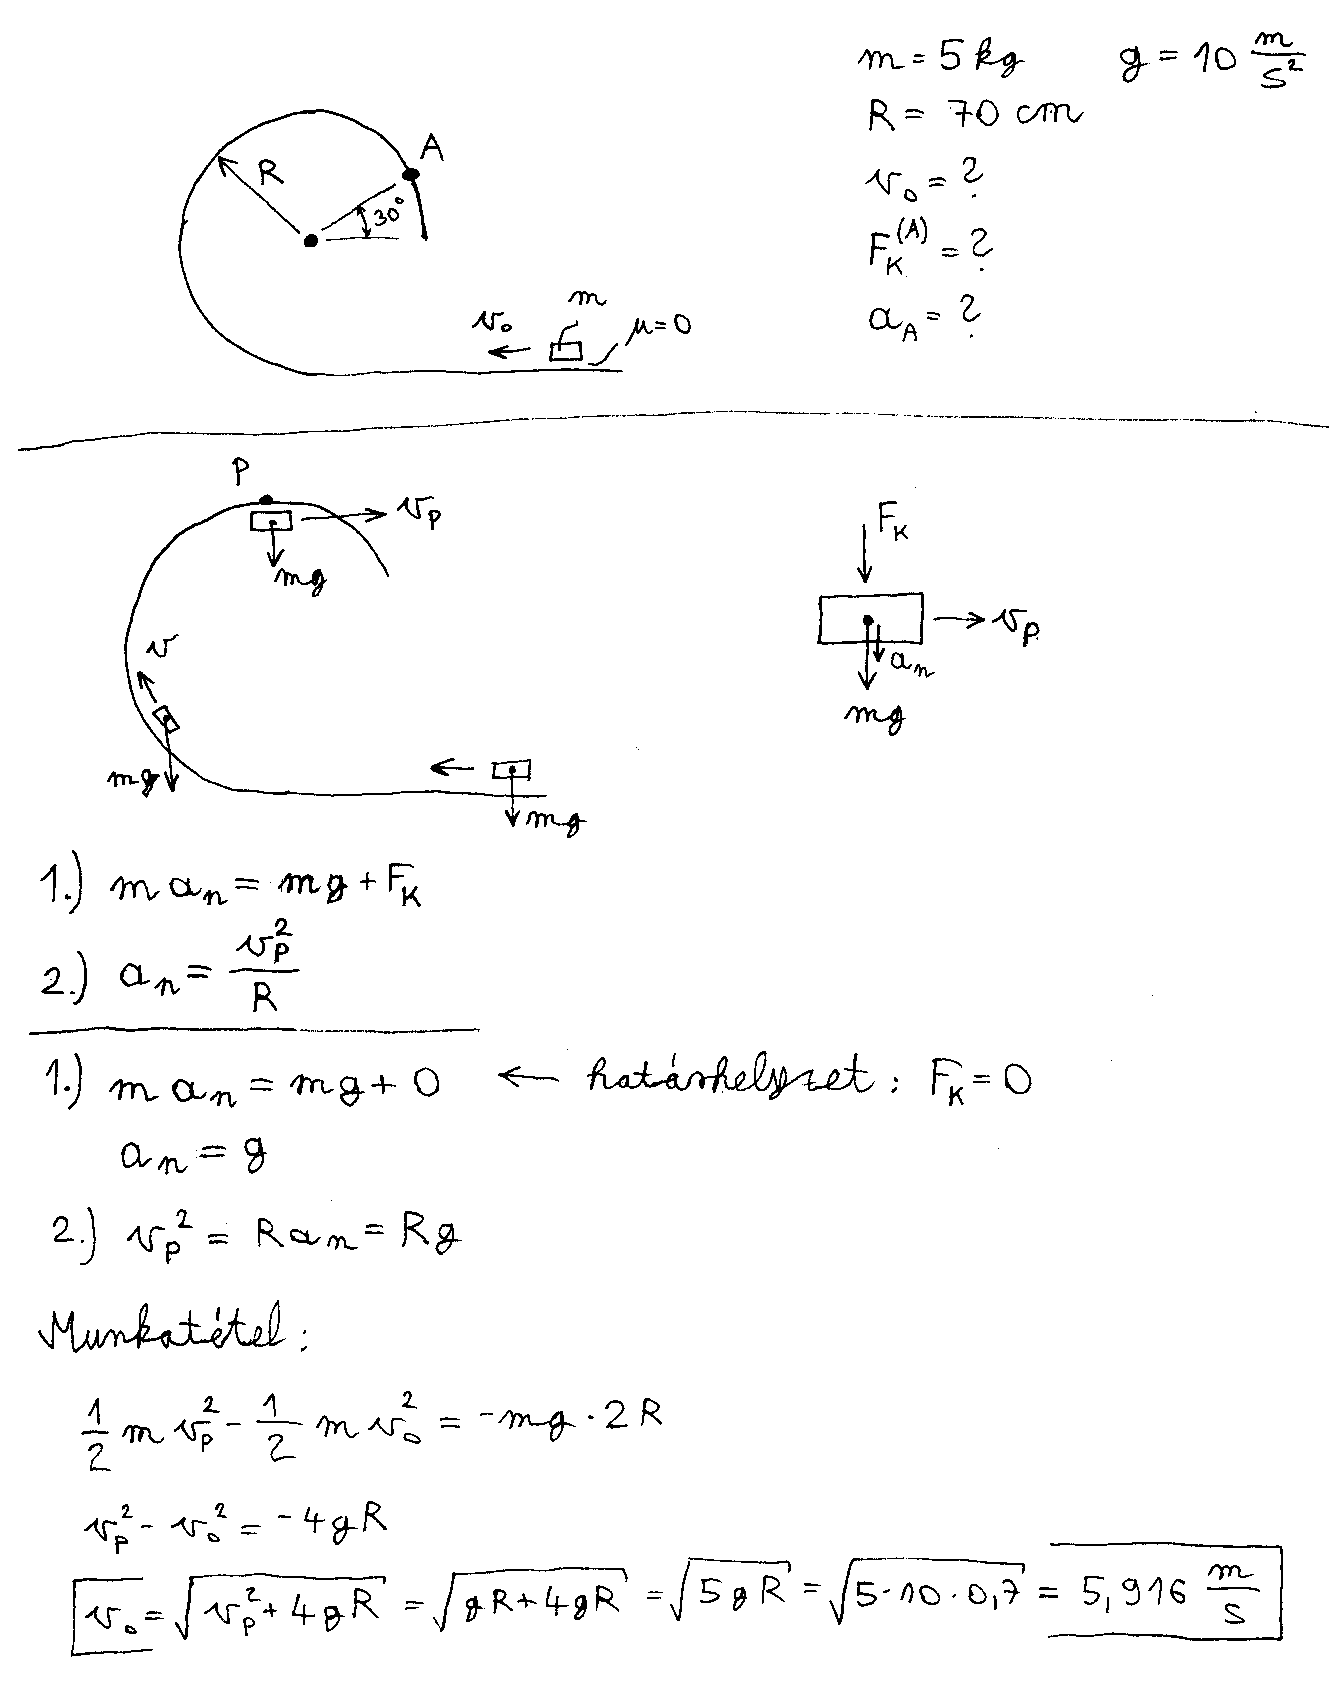 m = 5 kg g = 10 m/s²
R = 70 cm
v₀ = ?
F_K^(A) = ?
a_A = ?
A
R
30°
m
v₀
μ=0
P
v_P
mg
v
mg
mg
F_K
v_P
a_n
mg
1.) m a_n = mg + F_K
2.) a_n = v_P²/R
1.) m a_n = mg + 0 ← határhelyzet: F_K = 0
a_n = g
2.) v_P² = R a_n = Rg
Munkatétel:
1/2 m v_P² - 1/2 m v₀² = -mg · 2R
v_P² - v₀² = -4gR
v₀ = √(v_P² + 4gR) = √(gR + 4gR) = √(5gR) = √(5·10·0,7) = 5,916 m/s